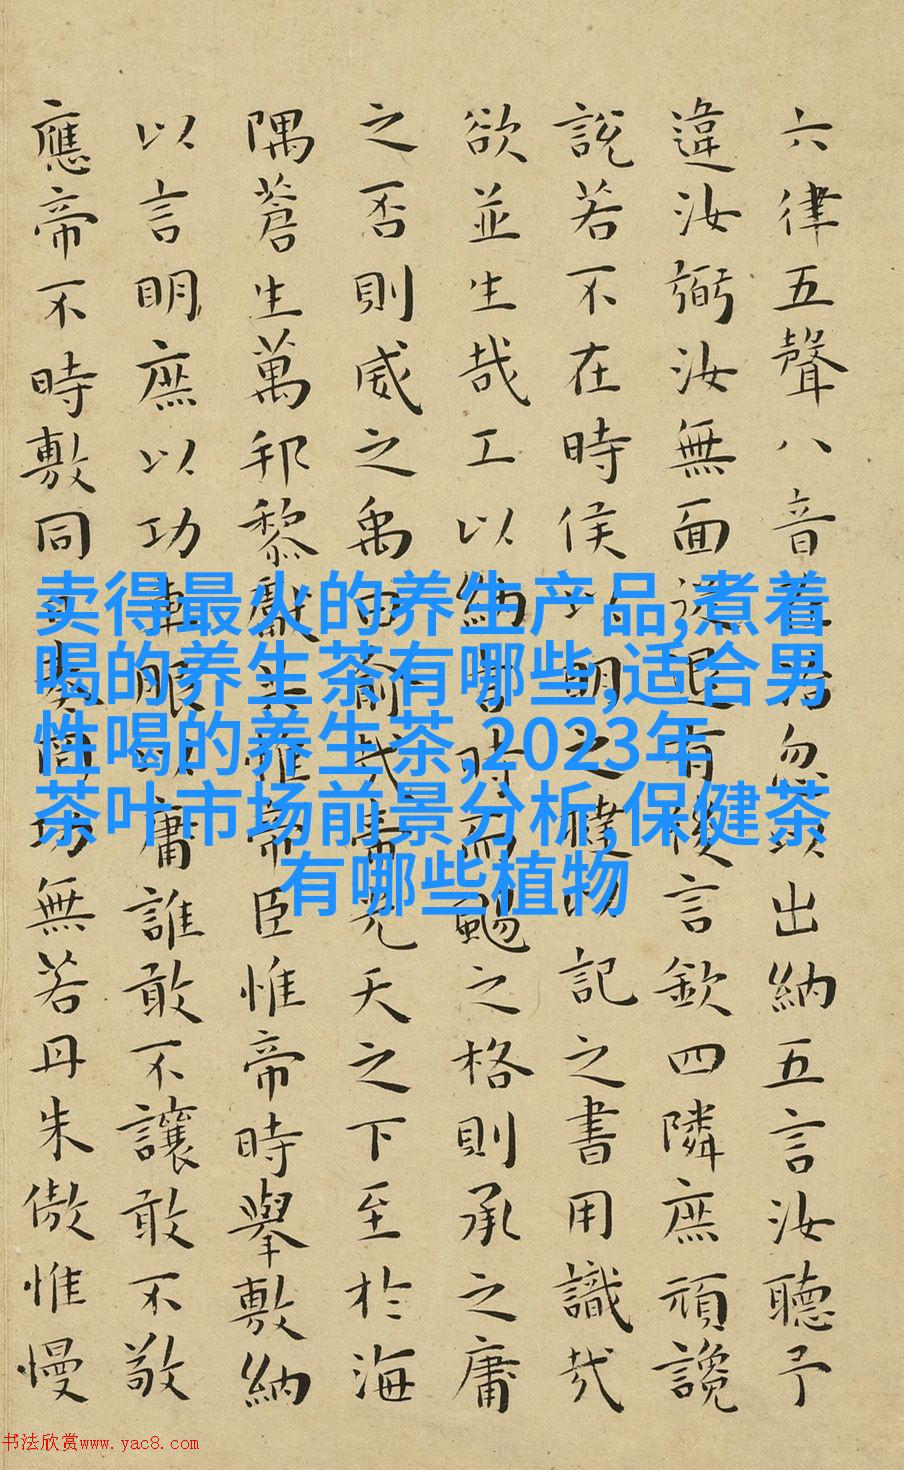 六律五聲八音在治忽以出納五言汝聽予
違汝弼汝無面從退有後言欽四隣庶頑讒
說若不在時侯以明之撻以記之書用識哉
欲並生哉工以納言時而颺之格則承之庸
之否則威之禹曰俞哉帝光天之下至於海
隅蒼生萬邦黎獻共惟帝臣惟帝時舉敷納
以言明庶以功車服以庸誰敢不讓敢不敬
應帝不時敷同日奏罔功無若丹朱傲惟慢
卖得最火的养生产品,煮着
喝的养生茶有哪些,适合男
性喝的养生茶,2023年
茶叶市场前景分析,保健茶
有哪些植物
书法欣赏www.yac8.com